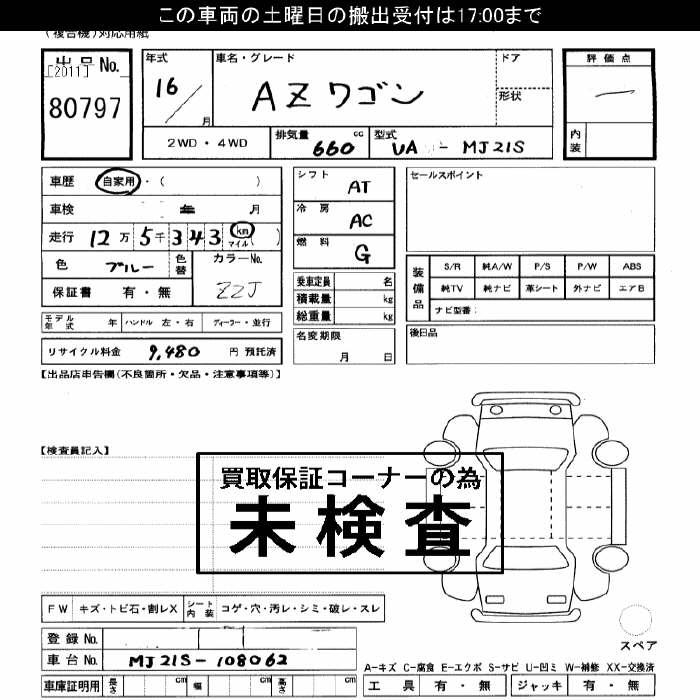 この車両の土曜日の搬出受付は17:00まで
(複合機)対応用紙
出品 No.
[2011]
80797
年式
16
月
車名・グレード
AZワゴン
ドア
形状
評価点
内装
2WD・4WD
排気量
660 cc
型式
UA - MJ21S
車歴 自家用・( )
車検 年 月
走行 12万5千343 km マイル ( )
色 ブルー 色替
カラーNo.
ZZJ
保証書 有・無
モデル年式 年 ハンドル 左・右 ディーラー・並行
リサイクル料金 9,480 円 預託済
シフト AT
冷房 AC
燃料 G
乗車定員 名
積載量 kg
総重量 kg
名変期限
月 日
セールスポイント
装備品
S/R 純A/W P/S P/W ABS
純TV 純ナビ 革シート 外ナビ エアB
ナビ型番:
後日品
【出品店申告欄(不良箇所・欠品・注意事項等)】
【検査員記入】
買取保証コーナーの為
未検査
FW キズ・トビ石・割レX シート内装 コゲ・穴・汚レ・シミ・破レ・スレ
登録 No.
車台 No. MJ21S-108062
車庫証明用 長さ cm 幅 cm 高さ cm
スペア
A-キズ C-腐食 E-エクボ S-サビ U-凹ミ W-補修 XX-交換済
工具 有・無 ジャッキ 有・無